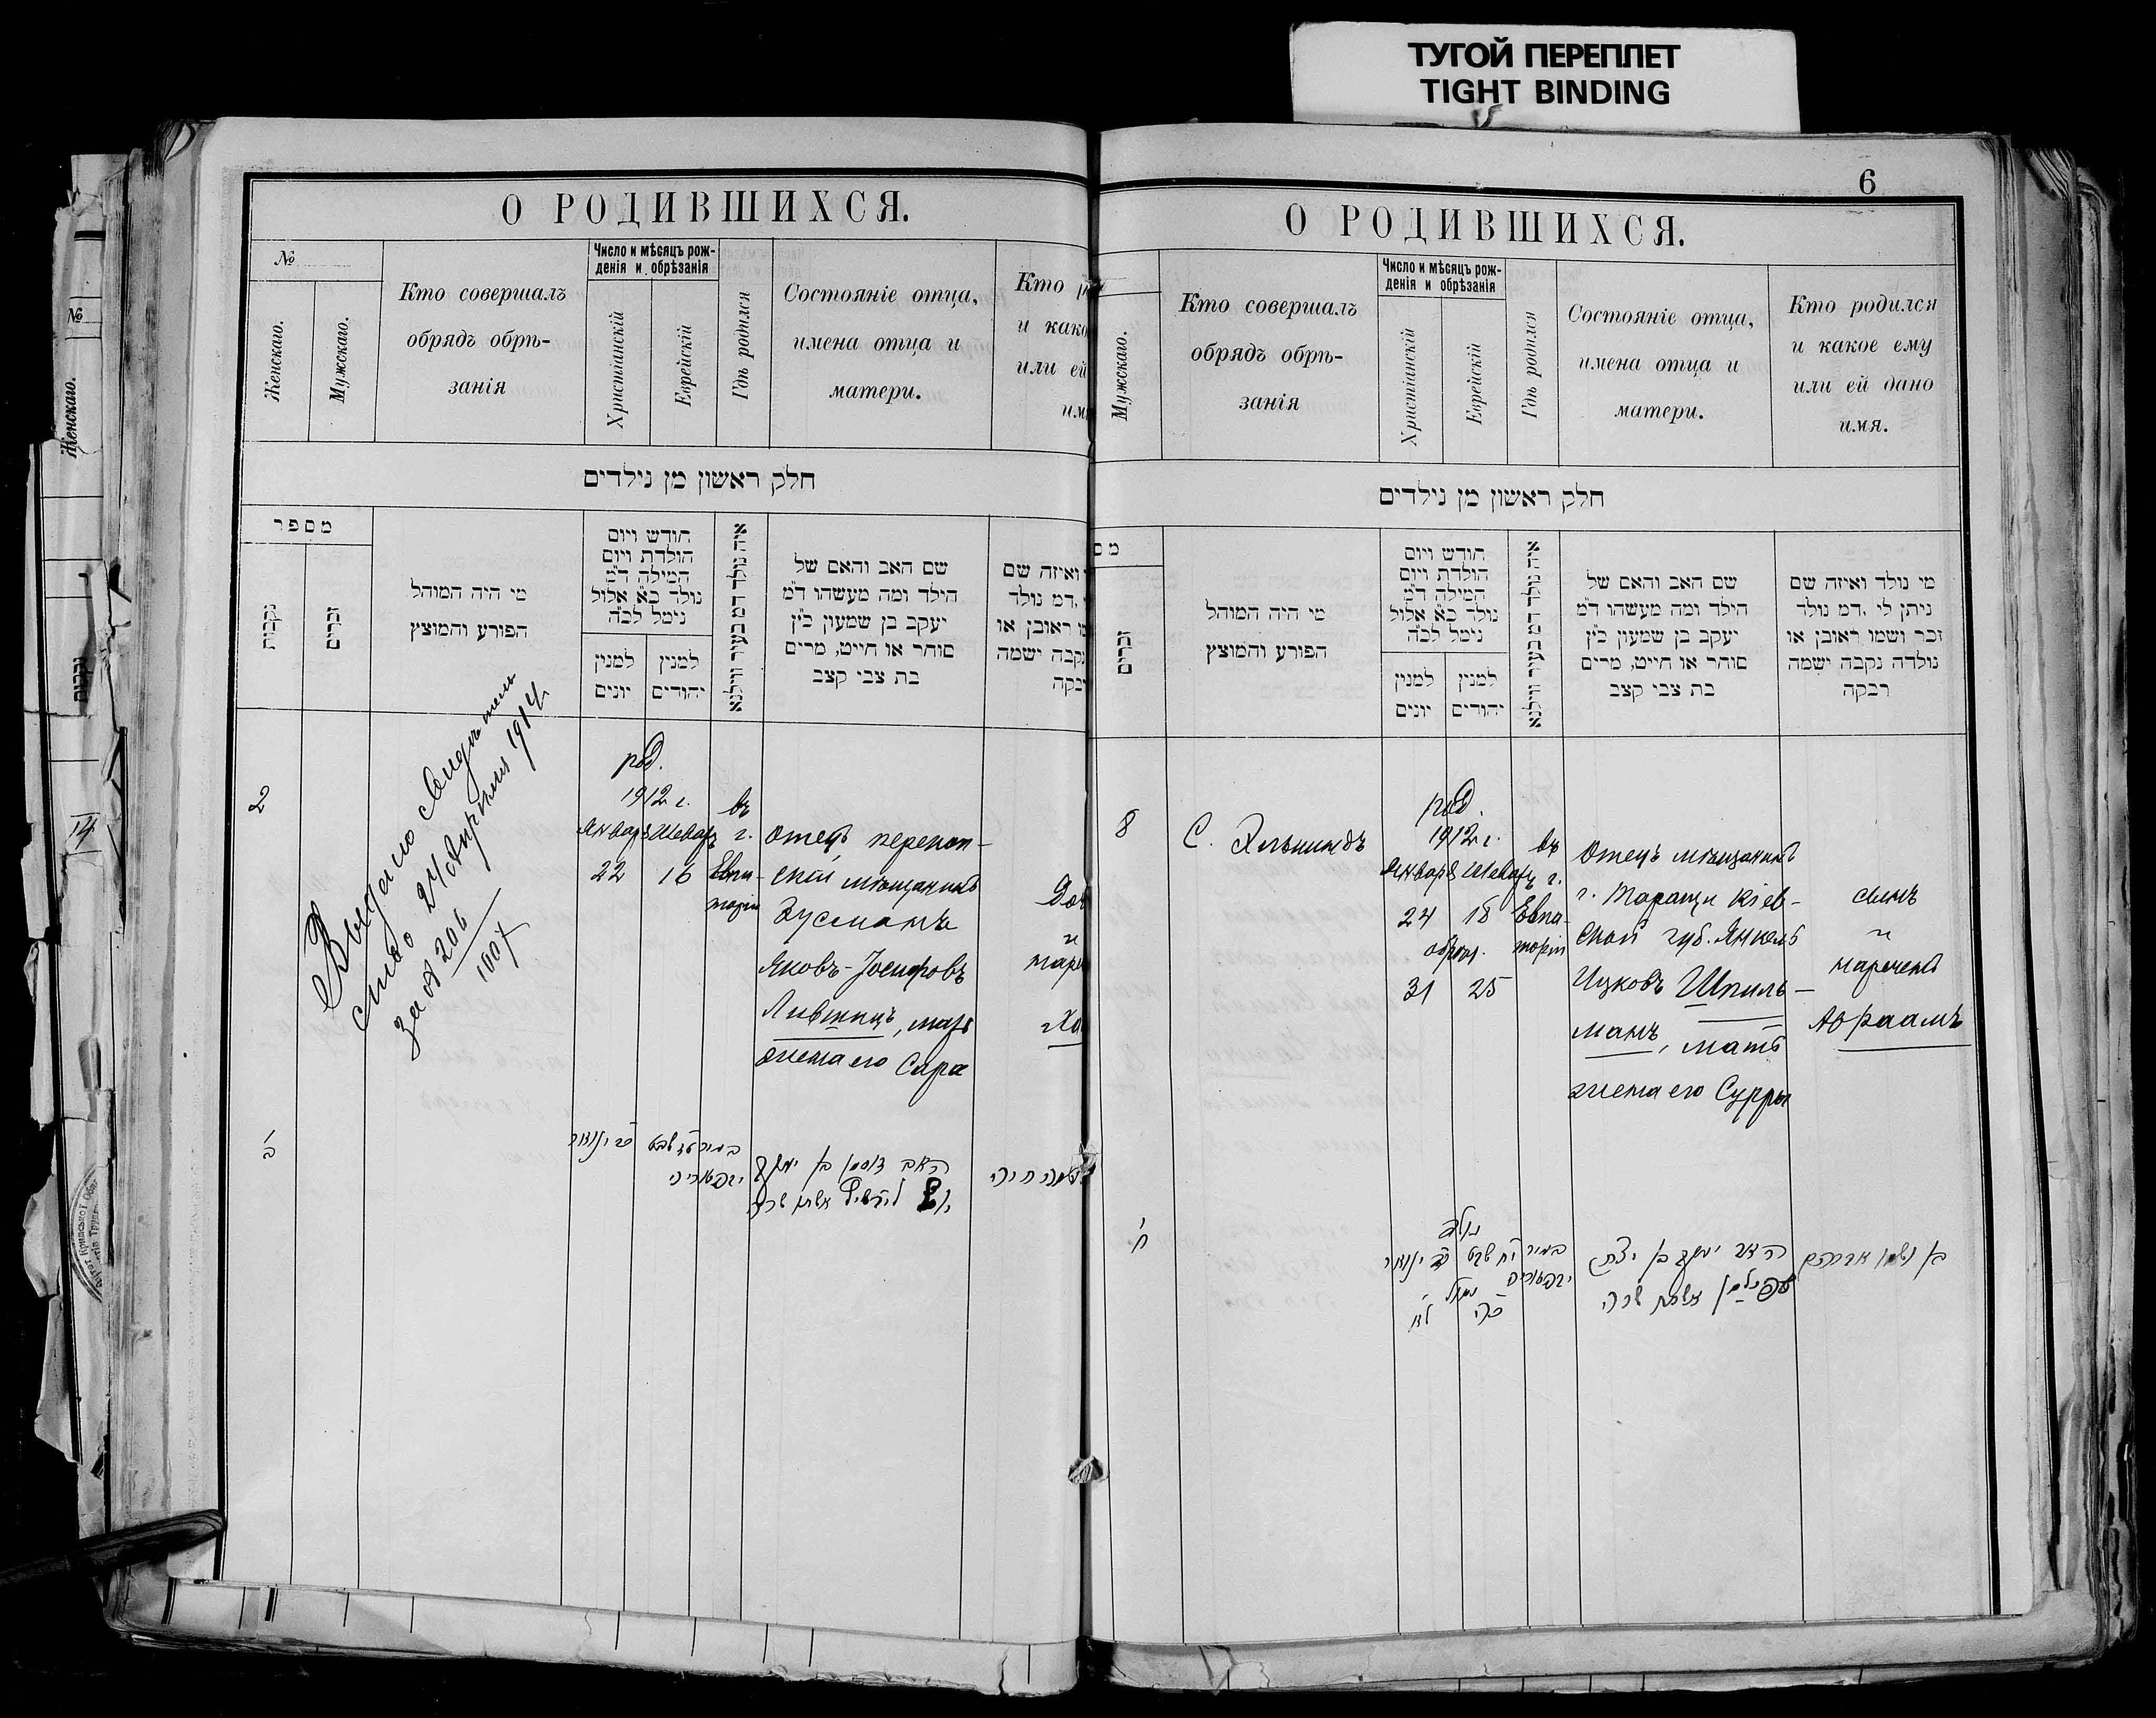 ТУГОЙ ПЕРЕПЛЕТ
TIGHT BINDING
О РОДИВШИХСЯ.
№
Женскаго.
Мужскаго.
Кто совершалъ
обрядъ обрѣ-
занія
Число и мѣсяцъ рож-
денія и обрѣзанія
Христіанскій
Еврейскій
Гдѣ родился
Состояніе отца,
имена отца и
матери.
Кто
и како
или ей
им
חלק ראשון מן נילדים
מספר
נקבות
זכרים
מי היה המוהל
הפורע והמוצץ
חודש ויום
הולדת ויום
המילה ד"מ
נולד כ"א אלול
נימל לכ"ה
למנין
יונים
למנין
יהודים
איה נולד דמ בעיר ווילנא
שם האב והאם של
הילד ומה מעשהו ד"מ
יעקב בן שמעון כ"ץ
סוחר או חייט, מרים
בת צבי קצב
ואיזה שם
דמ נולד
ראובן או
נקבה ישמה
רבקה
2
Выдано свидѣтель
ство 24 Апрѣля 1914
за № 206
1007
род.
1912 г.
Января Шеватъ
22 16
въ
г.
Евпа-
торіи
Отецъ перекоп-
скій мѣщанинъ
Зусманъ
Яковъ-Іосифовъ
Лившицъ, мать
жена его Сара
Доч
и
наре
Ха
ב
כ"ב ינואר
ט"ז שבט
בעיר
יבפטוריה
האב זוסמן בן יעקב
ליפשיץ אשתו שרה
חיה
6
О РОДИВШИХСЯ.
Мужскаго.
Кто совершалъ
обрядъ обрѣ-
занія
Число и мѣсяцъ рож-
денія и обрѣзанія
Христіанскій
Еврейскій
Гдѣ родился
Состояніе отца,
имена отца и
матери.
Кто родился
и какое ему
или ей дано
имя.
חלק ראשון מן נילדים
מס
זכרים
מי היה המוהל
הפורע והמוצץ
חודש ויום
הולדת ויום
המילה ד"מ
נולד כ"א אלול
נימל לכ"ה
למנין
יונים
למנין
יהודים
איה נולד דמ בעיר ווילנא
שם האב והאם של
הילד ומה מעשהו ד"מ
יעקב בן שמעון כ"ץ
סוחר או חייט, מרים
בת צבי קצב
מי נולד ואיזה שם
ניתן לי ,דמ נולד
זכר ושמו ראובן או
נולדה נקבה ישמה
רבקה
8
С.
род.
1912 г.
Января Шеватъ
24 18
обрѣз.
31 25
въ
г.
Евпа-
торіи
Отецъ мѣщанинъ
г. Таращи Кіев-
ской губ. Янкель
Ицковъ Шпиль-
манъ, мать
жена его Сурры
сынъ
и
нареченъ
Авраамъ
ח
נולד
ינואר
י"ח שבט
בעיר
יבפטוריה
נימול
ל"א
כ"ה
האב יעקב בן יצחק
שפילמן אשתו שרה
בן ושמו אברהם